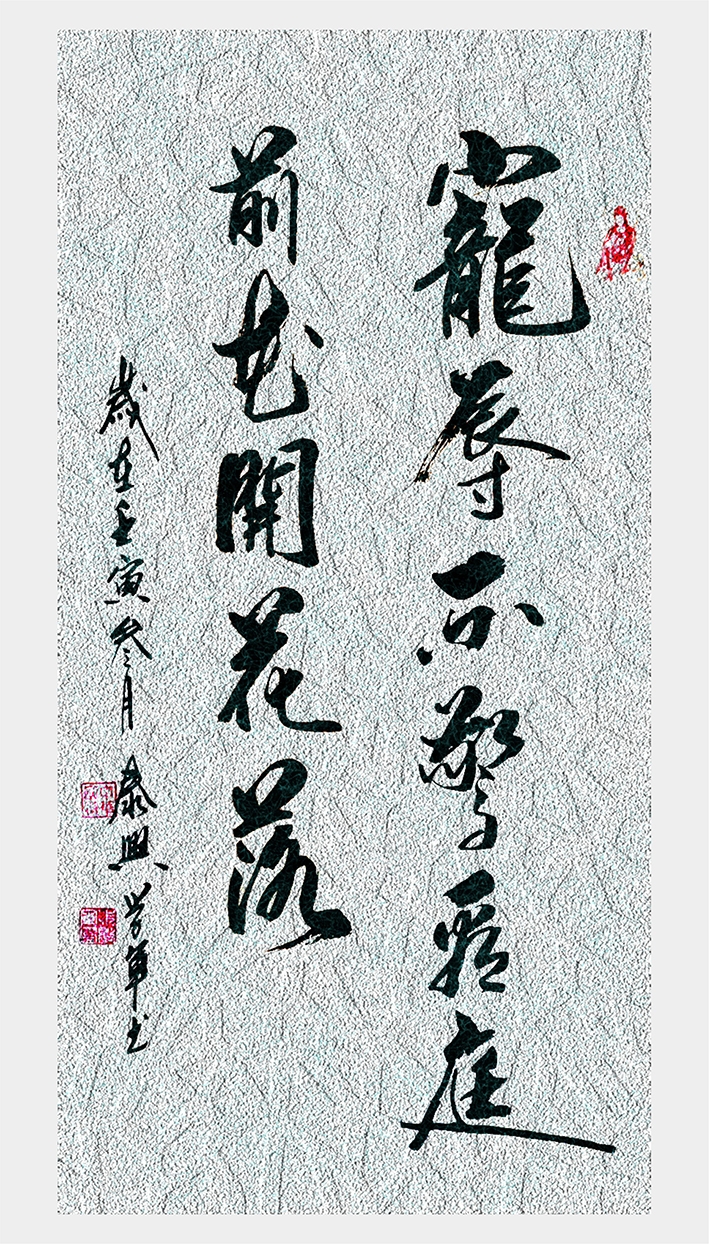 寵辱不驚看庭
前花開花落
歲在壬寅叁月 泰興学軍书